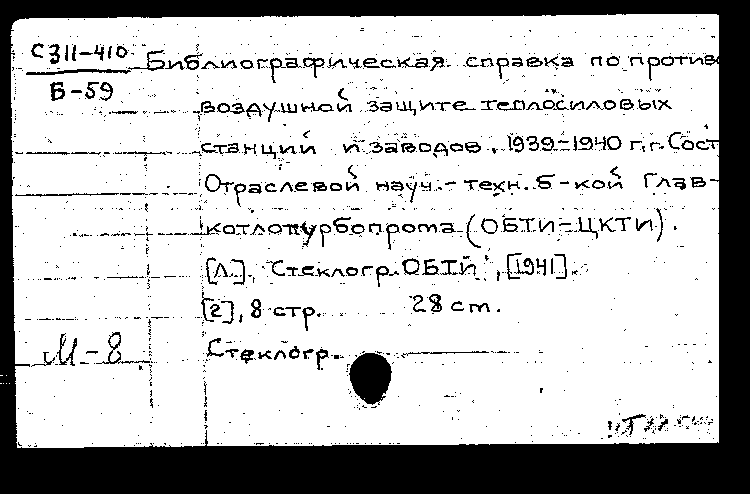 С311-410
Б-59
Библиографическая справка по противо
воздушной защите теплосиловых
станций и заводов, 1939-1940 г.г. Сост
Отраслевой науч.-техн. б-кой Глав-
котлотурбопрома (ОБТИ-ЦКТИ).
[Л.], Стеклогр. ОБТИ, [1941].
[2], 8 стр. 28 ст.
М-8
Стеклогр.